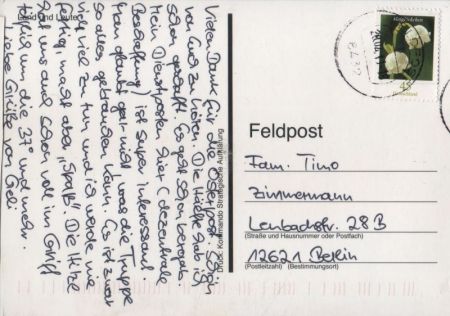 Land und Leute:
Vielen Dank für die Osterpost. Schön
von Euch zu hören. Die Hälfte habe ich
schon geschafft. Es geht schon bergab.
Mein Dienstposten hier (dezentrale
Beschaffung) ist super interessant.
Man glaubt gar nicht was die Truppe
so alles gebrauchen kann. Es ist zwar
viel viel zu tun und ich werde nie
fertig, macht aber "Spaß". Die Hitze
hat uns auch schon voll im Griff
täglich um die 37° und mehr.
Liebe Grüße von Geli
Druck: Kommando Strategische Aufklärung
Maiglöckchen
45
Deutschland
6432
Feldpost
Fam. Timo
Zimmermann
Lenbachstr. 28 B
(Straße und Hausnummer oder Postfach)
12621 Berlin
(Postleitzahl) (Bestimmungsort)